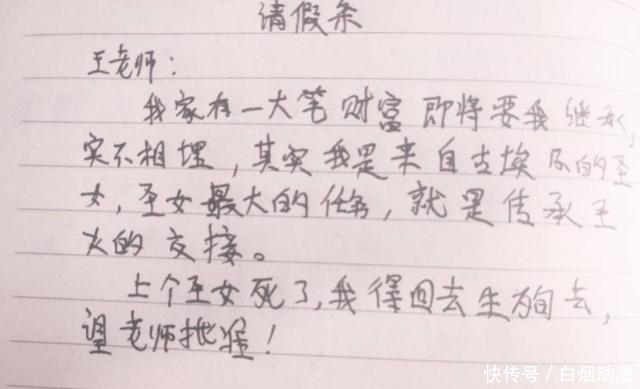 请假条
王老师：
我家有一大笔财富即将要我继承,
实不相埋，其实我是来自古埃及的圣
女，圣女最大的任务，就是传承圣
火的交接。
上个圣女死了，我得回去
望老师批准！
快传号／白烟动漫